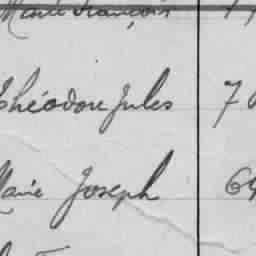 Marie François
Théodore Jules 7
Marie Joseph 64